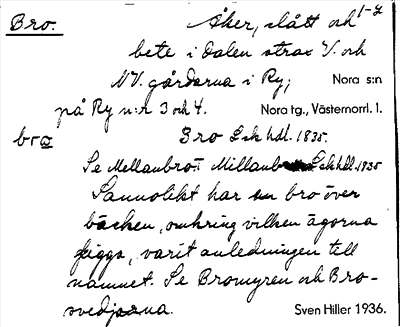 Bro. Åker, slått och 1-2
bete i dalen strax V. och
NV. gårdarna i Ry; Nora s:n
på Ry n:r 3 och 4. Nora tg., Västernorrl. l.
bro Bro Lsk hdl. 1835.
Se Mellanbro Lsk hdl. 1835
Sannolikt har en bro över
bäcken, omkring vilken ägorna
ligga, varit anledningen till
namnet. Se Bromyren och Bro-
svedjorna. Sven Hiller 1936.